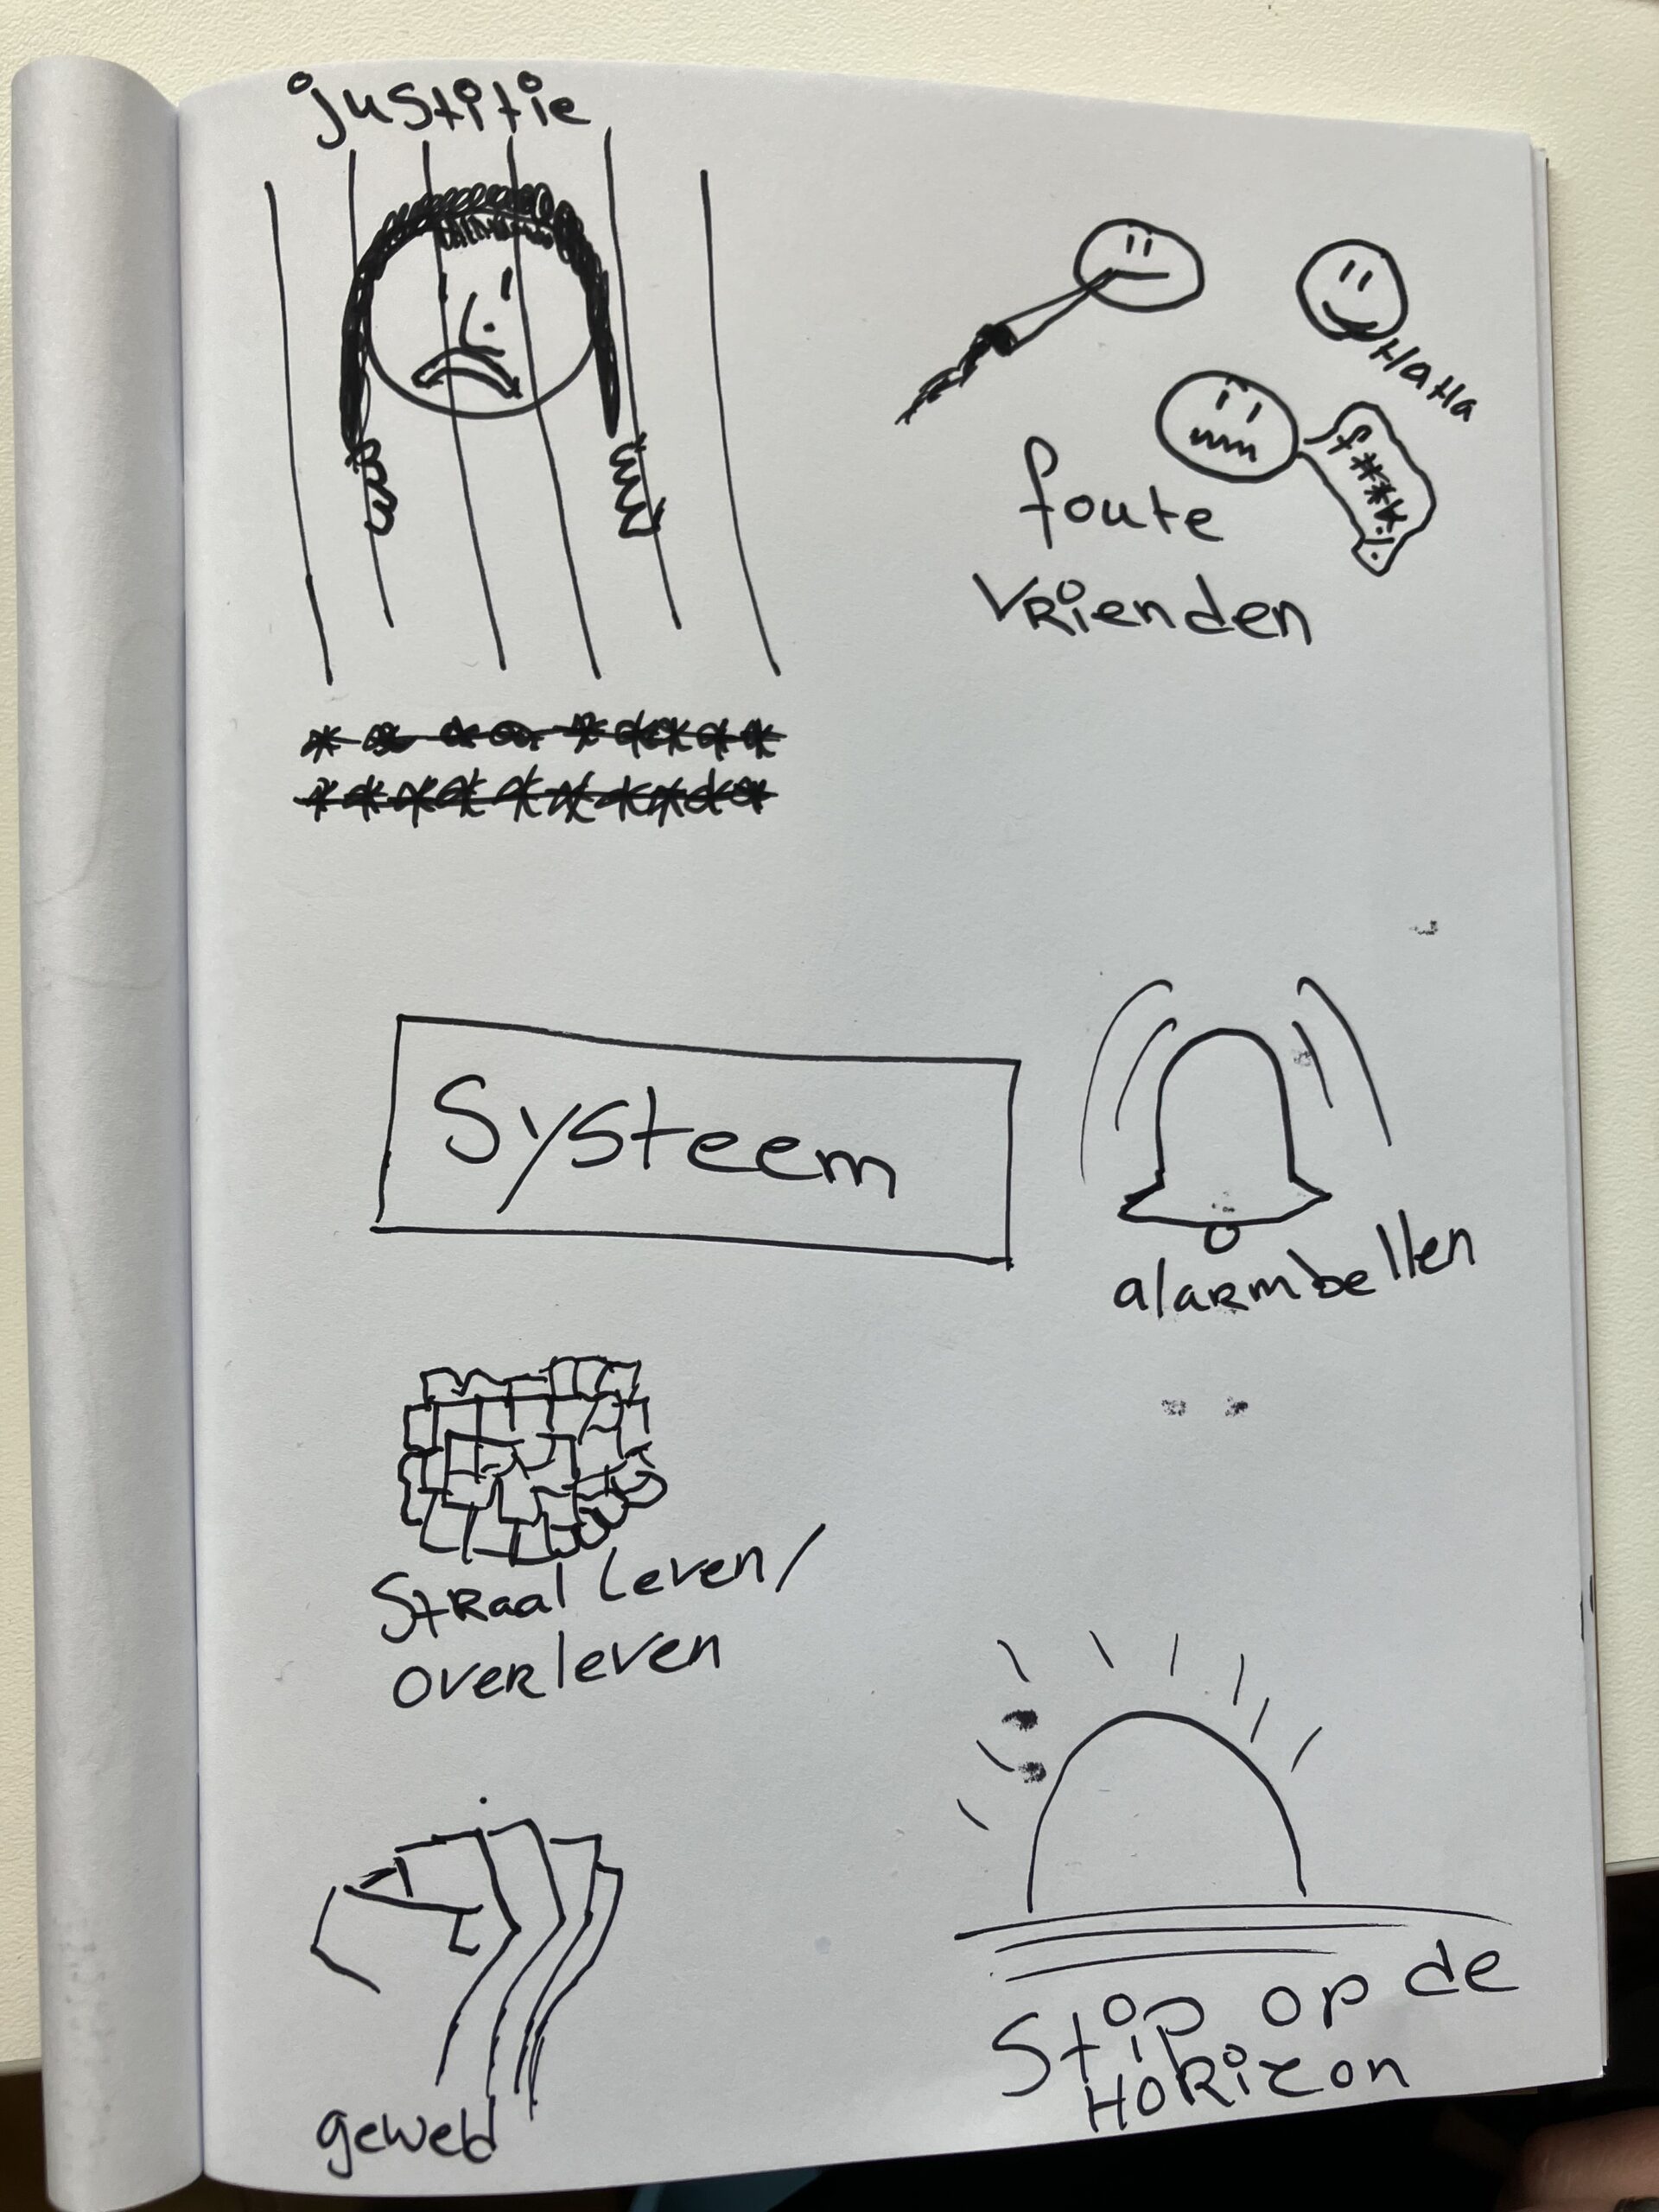 justitie
HaHa
f***k!
foute
vrienden
Systeem
alarmbellen
Straal leven/
overleven
geweld
Stip op de
Horizon